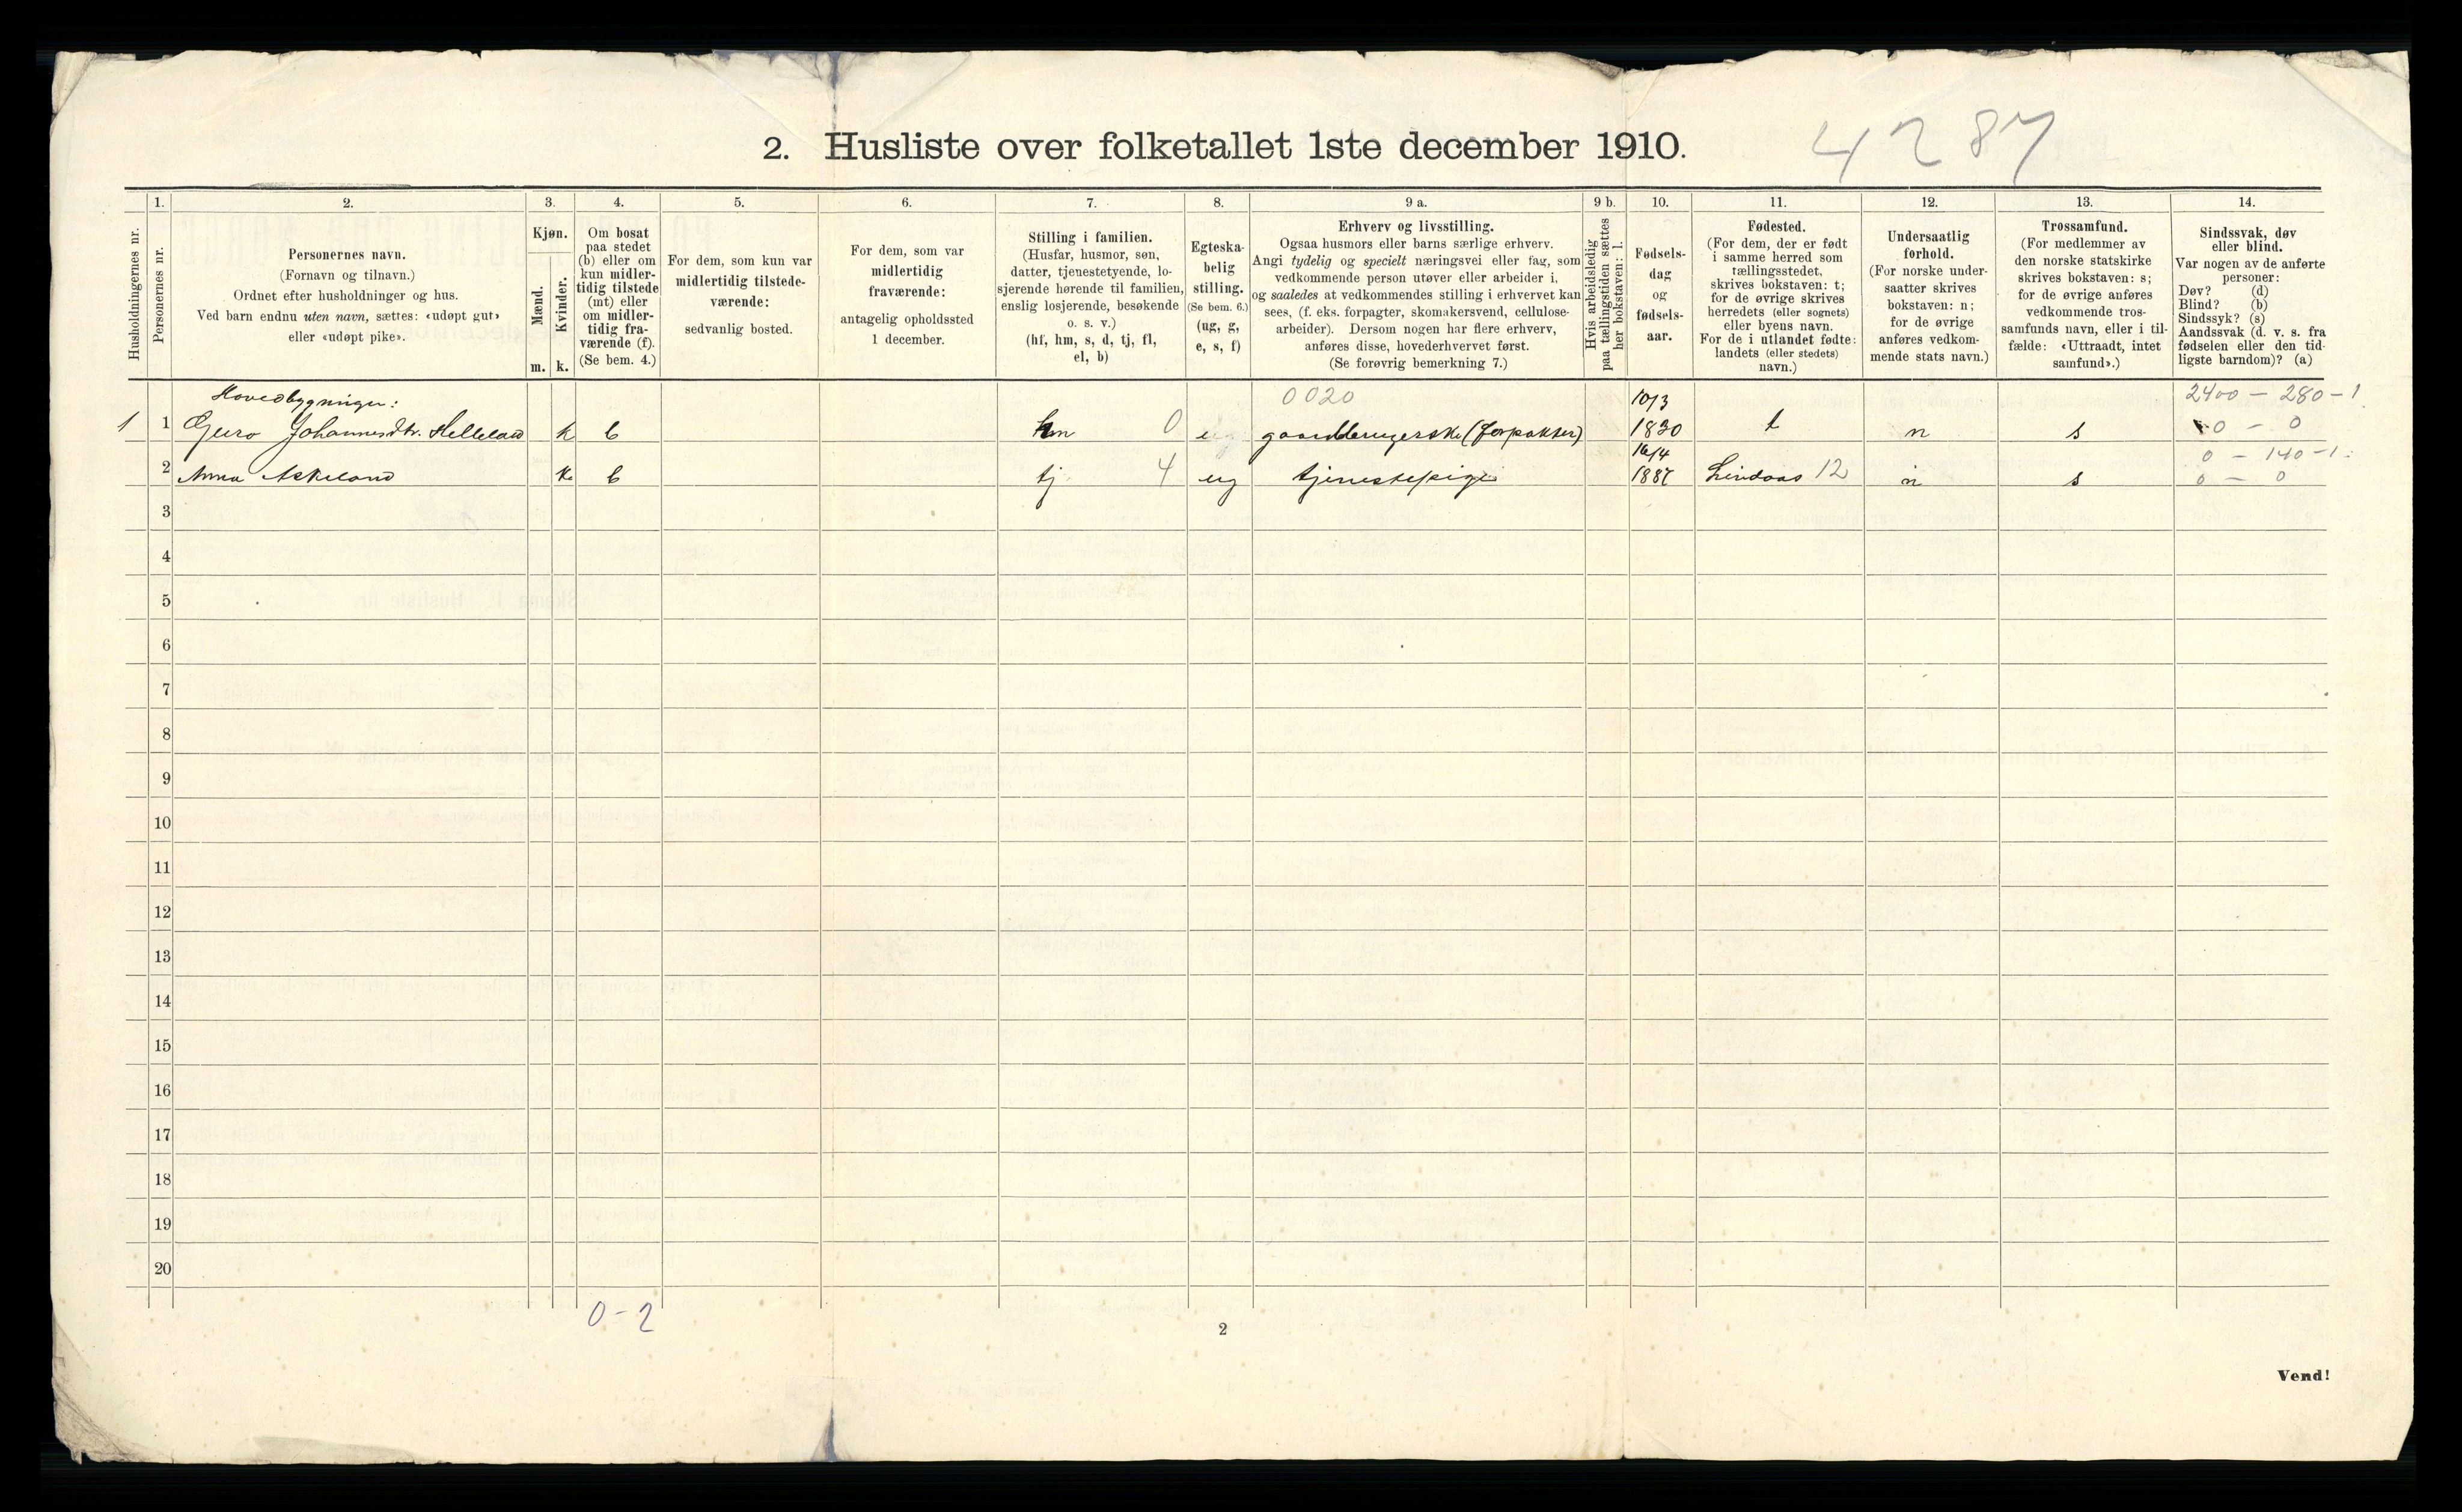 2. Husliste over folketallet 1ste december 1910.
4287
Husholdningernes nr.
1.
Personernes nr.
2.
Personernes navn.
(Fornavn og tilnavn.)
Ordnet efter husholdninger og hus.
Ved barn endnu uten navn, sættes: «udøpt gut»
eller «udøpt pike».
3.
Kjøn.
Mænd.
Kvinder.
m. k.
4.
Om bosat
paa stedet
(b) eller om
kun midler-
tidig tilstede
(mt) eller
om midler-
tidig fra-
værende (f).
(Se bem. 4.)
5.
For dem, som kun var
midlertidig tilstede-
værende:
sedvanlig bosted.
6.
For dem, som var
midlertidig
fraværende:
antagelig opholdssted
1 december.
7.
Stilling i familien.
(Husfar, husmor, søn,
datter, tjenestetyende, lo-
sjerende hørende til familien,
enslig losjerende, besøkende
o. s. v.)
(hf, hm, s, d, tj, fl,
el, b)
8.
Egteska-
belig
stilling.
(Se bem. 6.)
(ug, g,
e, s, f)
9 a.
Erhverv og livsstilling.
Ogsaa husmors eller barns særlige erhverv.
Angi tydelig og specielt næringsvei eller fag, som
vedkommende person utøver eller arbeider i,
og saaledes at vedkommendes stilling i erhvervet kan
sees, (f. eks. forpagter, skomakersvend, cellulose-
arbeider). Dersom nogen har flere erhverv,
anføres disse, hovederhvervet først.
(Se forøvrig bemerkning 7.)
9 b.
Hvis arbeidsledig
paa tællingstiden sættes
her bokstaven: l.
10.
Fødsels-
dag
og
fødsels-
aar.
11.
Fødested.
(For dem, der er født
i samme herred som
tællingsstedet,
skrives bokstaven: t;
for de øvrige skrives
herredets (eller sognets)
eller byens navn.
For de i utlandet fødte:
landets (eller stedets)
navn.)
12.
Undersaatlig
forhold.
(For norske under-
saatter skrives
bokstaven: n;
for de øvrige
anføres vedkom-
mende stats navn.)
13.
Trossamfund.
(For medlemmer av
den norske statskirke
skrives bokstaven: s;
for de øvrige anføres
vedkommende tros-
samfunds navn, eller i til-
fælde: «Uttraadt, intet
samfund».)
14.
Sindssvak, døv
eller blind.
Var nogen av de anførte
personer:
Døv? (d)
Blind? (b)
Sindssyk? (s)
Aandssvak (d. v. s. fra
fødselen eller den tid-
ligste barndom)? (a)
Hovedbygningen: 0020 10/3 2400 - 280 - 1
1 1 Guro Johannesdtr. Helleland k b hm 0 gaardbrugerske (forpakter) 1830 t n s 0 - 0
16/4 0 - 140 - 1
2 Anna Askeland k b tj 4 ug tjenestepige Lindaas 12 n s 0 - 0
3
4
5
6
7
8
9
10
11
12
13
14
15
16
17
18
19
20
0 - 2
2
Vend!